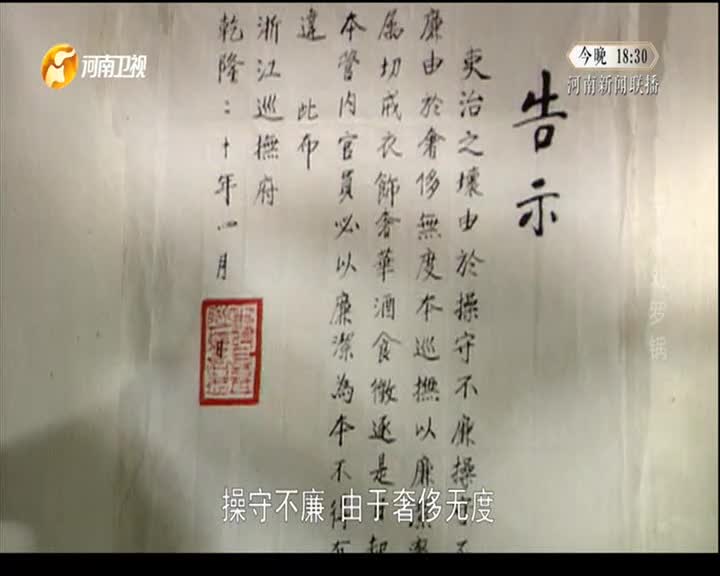 河南卫视
今晚 18:30
河南新闻联播
罗锅
告示
吏治之壞由於操守不廉操守不
廉由於奢侈無度本巡撫以廉潔率
属切戒衣飾奢華酒食徵逐是日起
本營内官員必以廉潔為本不得有
違 此布
浙江巡撫府
乾隆二十年四月
操守不廉 由于奢侈无度